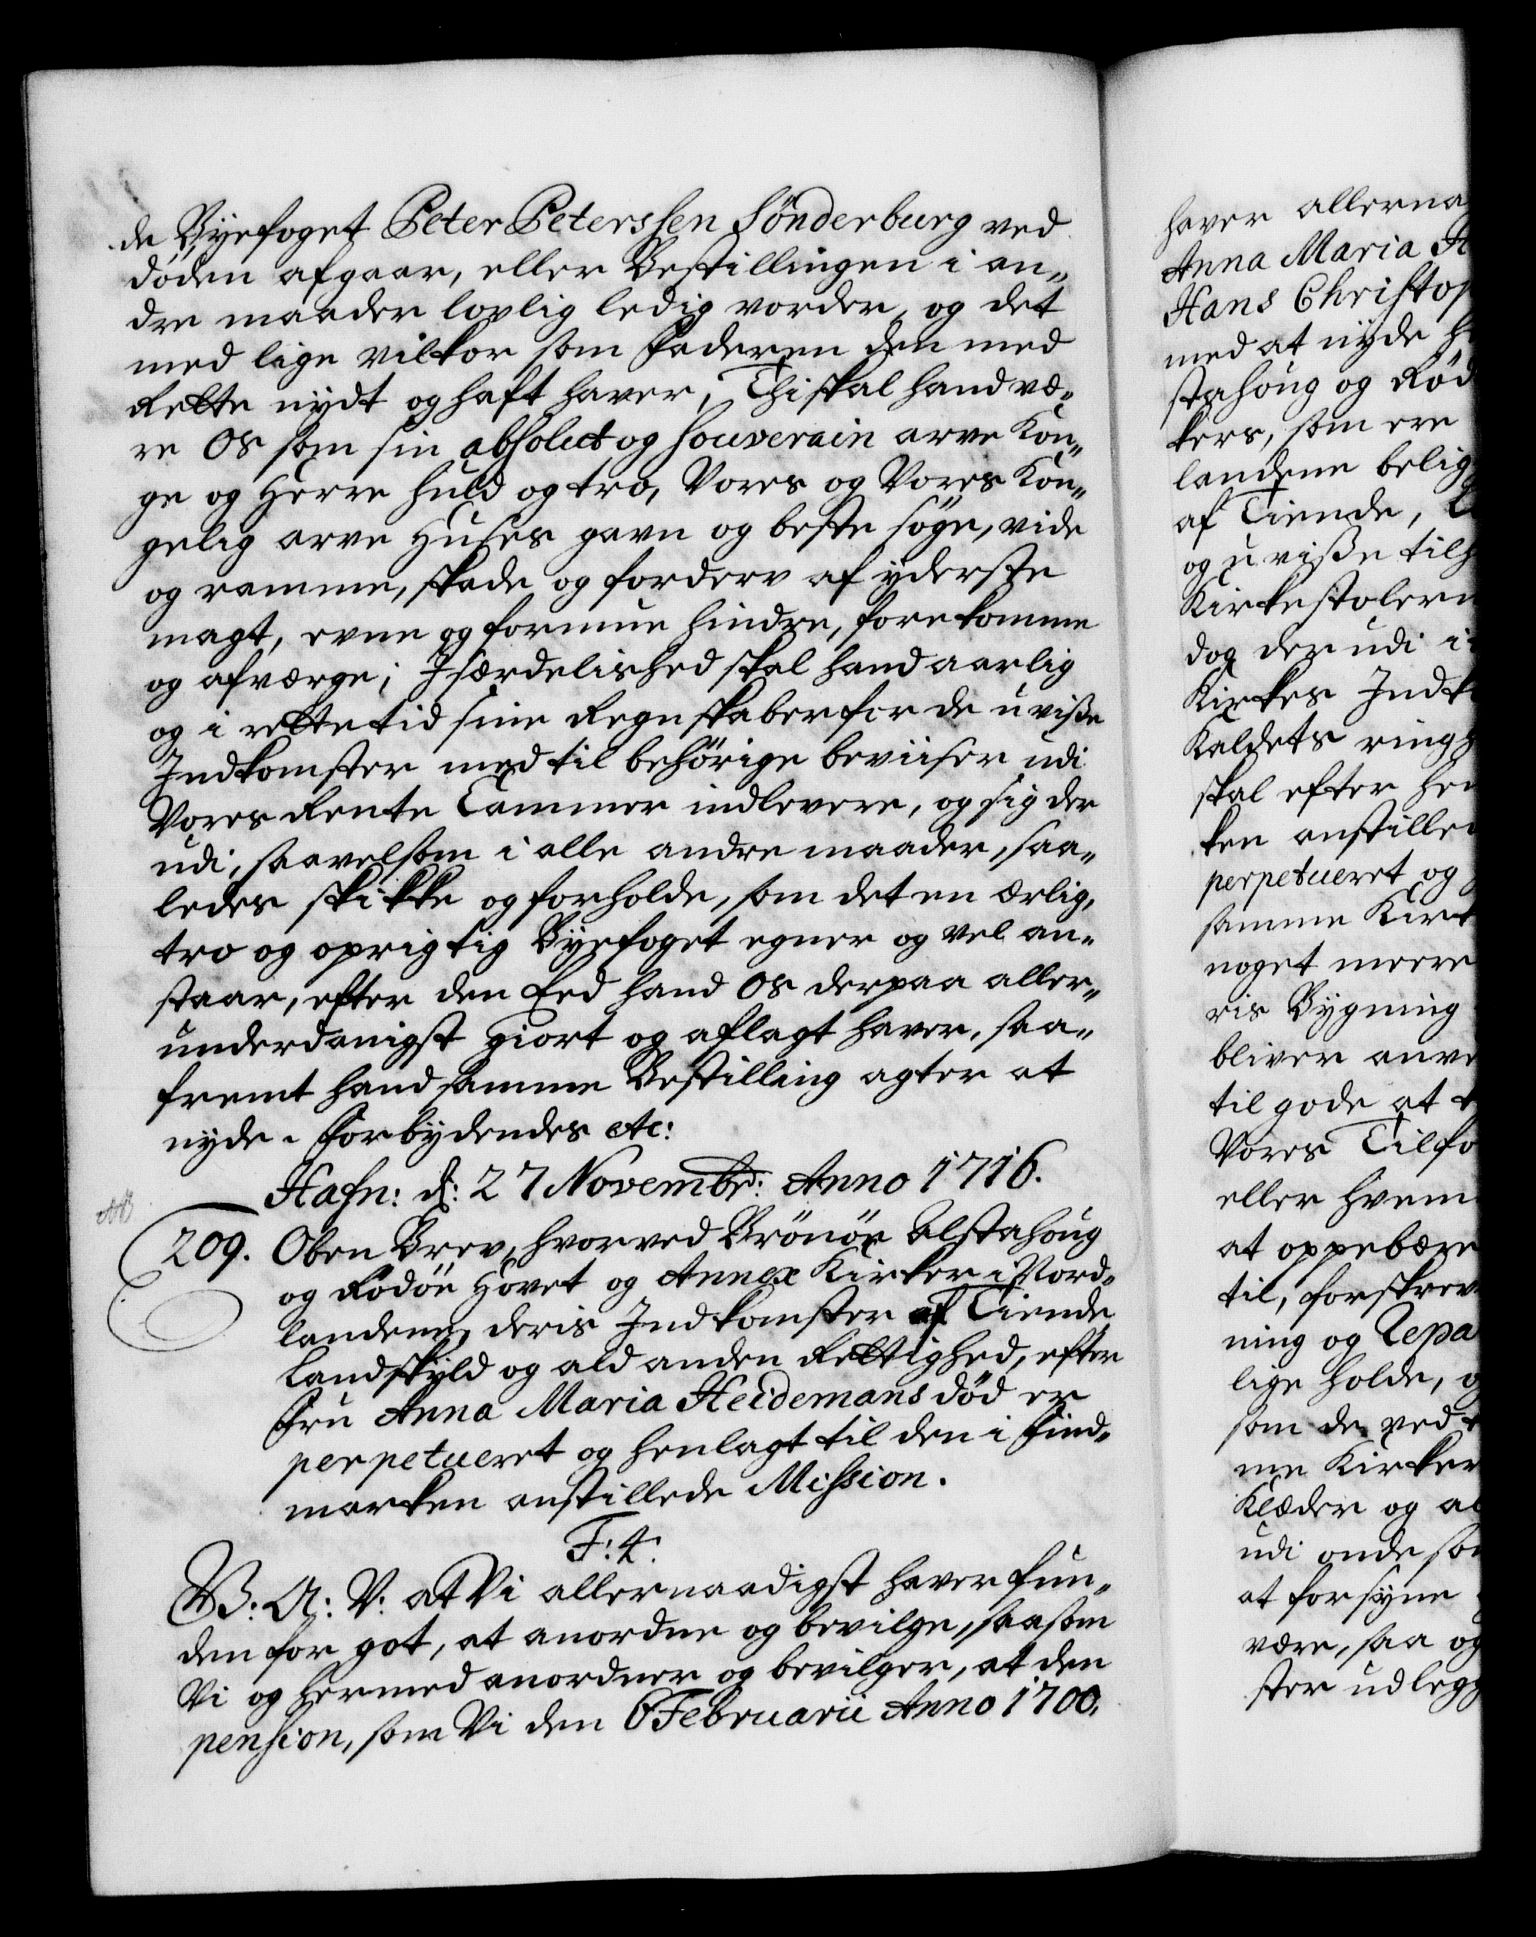 de Byefoget Peter Peterssen Sønderburg ved
døden afgaar, eller Bestillingen i an„
dre maader lovlig ledig vorder, og det
med lige vilkor som Faderen den med
Rette nydt og haft haver, Thi skal hand væ„
re Os som sin absolut og souverain arve Kon„
ge og Herre huld og tro, Vores og Vores Kon„
gelig arve Huses gavn og beste søge, vide
og ramme, skade og forderv af yderste
magt, evne og formue hindre, forekomme
og afværge; Jsærdelished skal hand aarlig
og i rette tid sine Regnskaber for de uvisse
Jndkomster med til behørige beviiser udi
Vores Rente Cammer indlevere, og sig der
udi, saavelsom i alle andre maader, saa„
ledes skikke og forholde, som det en ærlig,
tro og oprigtig Byefoget egner og vel an„
staar, efter den Eed hand Os derpaa aller„
underdanigst giort og aflagt haver, saa„
fremt hand samme Bestilling agter at
nyde. Forbydendes etc:
Hafn: d: 27 Novembr: Anno 1716.
209. Oben Brev, hvorved Brønøe Alstahoug
og Rødøe Hovet og Annex Kirker i Nord„
landene, deris Jndkomster af Tiende
Landskyld og ald anden Rettighed, efter
Fru Anna Maria Heidemans død er
perpetueret og henlagt til den i Find„
marken anstillede Mission.
F: 4.
W: A: V: at Vi allernaadigst haver fun„
den for got, at anordne og bevilge, saasom
Vi og hermed anordner og bevilger, at den
pension, som Vi den 6 Februarii Anno 1700.
haver allerna
Anna Maria H
Hans Christop
med at nyde
stahoug og Rød
kers, som ere
landene belig
af Tiende,
og uvisse tilh
Kirkestolern
dog der udi i
Kirkes Jndk
Kaldets ringh
skal efter hen
ken anstille
perpetueret og
samme Kirk
noget meere
ris Bygning
bliver anve
til gode at
Vores Tilfo
eller hvem
at oppebære
til, forskrev
ning og Repa
lige holde, o
som de ved
me Kirker
Klæder og al
udi onde so
at forsyne
være, saa og
ster udlegg